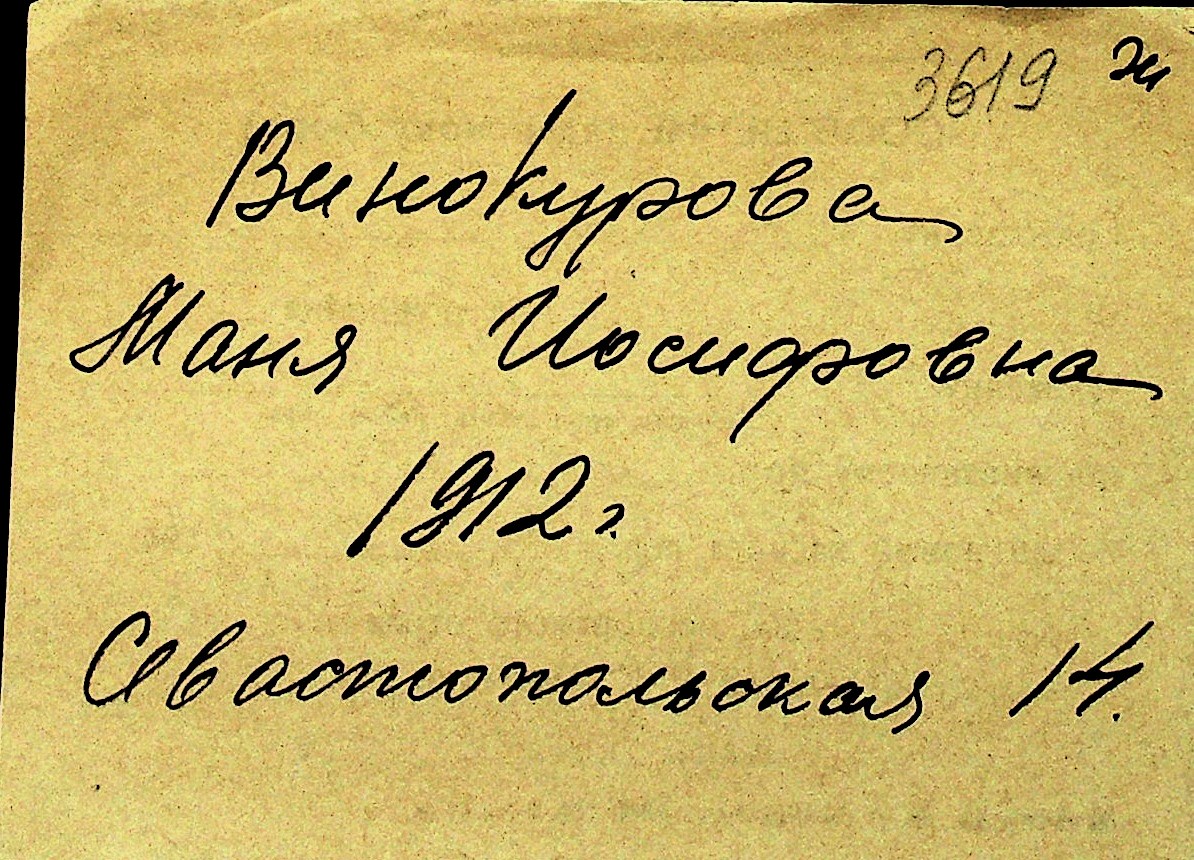 3619 ж
Винокурова
Маня Иосифовна
1912 г.
Севастопольская 14.